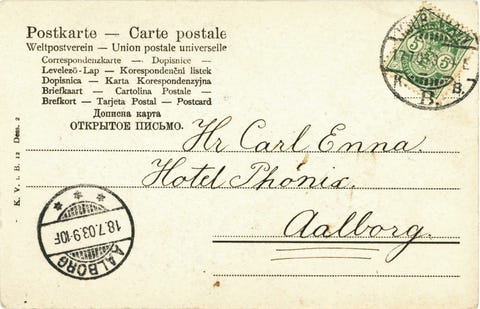 Postkarte — Carte postale
Weltpostverein — Union postale universelle
Correspondenzkarte — Dopisnice —
Levelező-Lap — Korespondenční listek
Dopisnica — Karta Korespondenzyjna
Briefkaart — Cartolina Postale —
Brefkort — Tarjeta Postal — Postcard
Дописна карта
ОТКРЫТОЕ ПИСЬМО.
5 5
K. B.
B.
Hr Carl Enna.
Hotel Phönix.
Aalborg.
K. V. i. B. 12 Dess. 2
18.7.03.9-10F
AALBORG